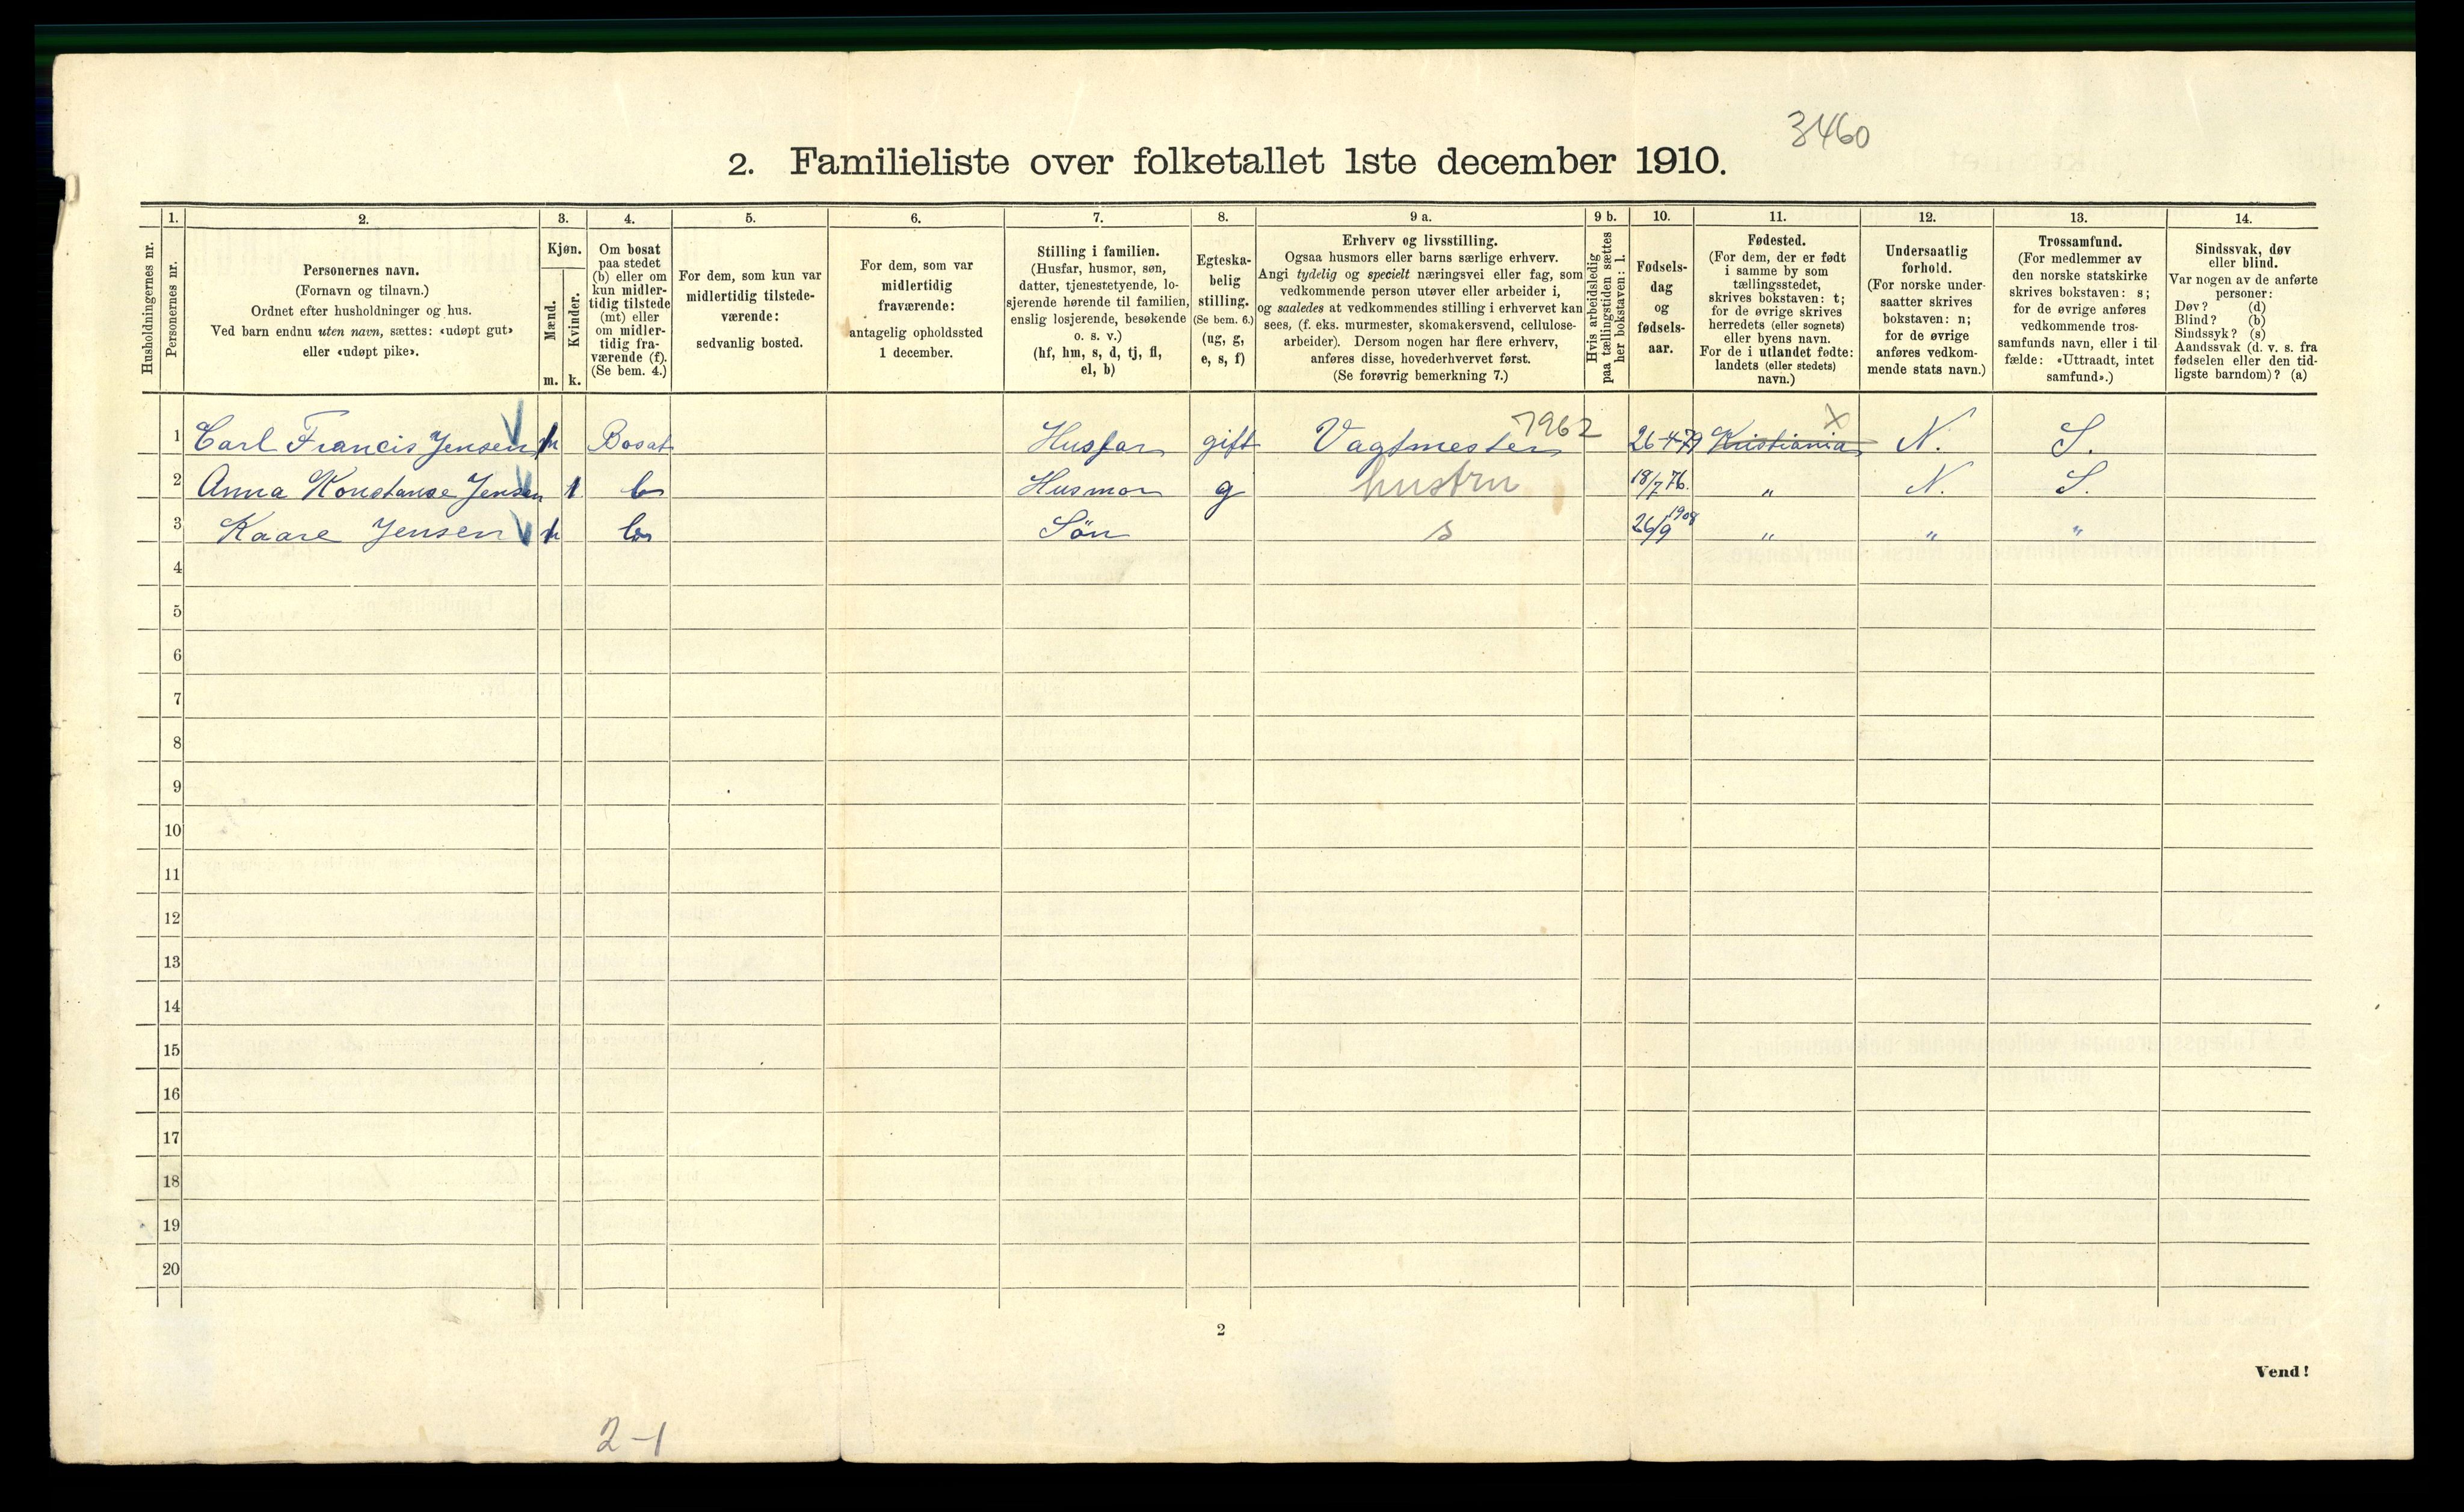 3460
2. Familieliste over folketallet 1ste december 1910.
1. 2. 3. 4. 5. 6. 7. 8. 9 a. 9 b. 10. 11. 12. 13. 14.
Husholdningernes nr.
Personernes nr.
Personernes navn.
(Fornavn og tilnavn.)
Ordnet efter husholdninger og hus.
Ved barn endnu uten navn, sættes: «udøpt gut»
eller «udøpt pike».
Kjøn.
Mænd.
Kvinder.
m. k.
Om bosat
paa stedet
(b) eller om
kun midler-
tidig tilstede
(mt) eller
om midler-
tidig fra-
værende (f).
(Se bem. 4.)
For dem, som kun var
midlertidig tilstede-
værende:
sedvanlig bosted.
For dem, som var
midlertidig
fraværende:
antagelig opholdssted
1 december.
Stilling i familien.
(Husfar, husmor, søn,
datter, tjenestetyende, lo-
sjerende hørende til familien,
enslig losjerende, besøkende
o. s. v.)
(hf, hm, s, d, tj, fl,
el, b)
Egteska-
belig
stilling.
(Se bem. 6.)
(ug, g,
e, s, f)
Erhverv og livsstilling.
Ogsaa husmors eller barns særlige erhverv.
Angi tydelig og specielt næringsvei eller fag, som
vedkommende person utøver eller arbeider i,
og saaledes at vedkommendes stilling i erhvervet kan
sees, (f. eks. murmester, skomakersvend, cellulose-
arbeider). Dersom nogen har flere erhverv,
anføres disse, hovederhvervet først.
(Se forøvrig bemerkning 7.)
Hvis arbeidsledig
paa tællingstiden sættes
her bokstaven: l.
Fødsels-
dag
og
fødsels-
aar.
Fødested.
(For dem, der er født
i samme by som
tællingsstedet,
skrives bokstaven: t;
for de øvrige skrives
herredets (eller sognets)
eller byens navn.
For de i utlandet fødte:
landets (eller stedets)
navn.)
Undersaatlig
forhold.
(For norske under-
saatter skrives
bokstaven: n;
for de øvrige
anføres vedkom-
mende stats navn.)
Trossamfund.
(For medlemmer av
den norske statskirke
skrives bokstaven: s;
for de øvrige anføres
vedkommende tros-
samfunds navn, eller i til-
fælde: «Uttraadt, intet
samfund».)
Sindssvak, døv
eller blind.
Var nogen av de anførte
personer:
Døv? (d)
Blind? (b)
Sindssyk? (s)
Aandssvak (d. v. s. fra
fødselen eller den tid-
ligste barndom)? (a)
1 Carl Francis Jensen Bosat Husfar gift Vagtmester 7962 26-4-79 Kristiania x N. S.
2 Anna Konstanse Jensen 1 b Husmor g hustru 18/7 76. " N. S.
3 Kaare Jensen b Sön s 26/9 1908 " " "
4
5
6
7
8
9
10
11
12
13
14
15
16
17
18
19
20
2
Vend!
2-1